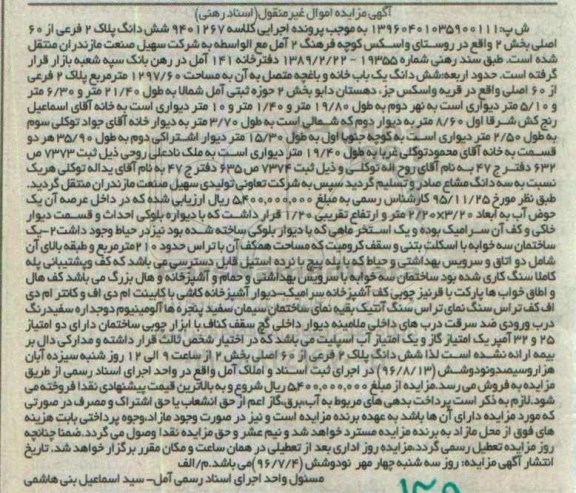 آگهی مزایده اموال غیرمنقول(اسناد رهنی)
ش پ:۱۳۹۶۰۴۰۱۰۳۵۹۰۰۱۱۱ به موجب پرونده اجرایی کلاسه ۹۴۰۱۲۶۷ شش دانگ پلاک ۲ فرعی از ۶۰
اصلی بخش ۲ واقع در روستای واسکس کوچه فرهنگ ۲ آمل مع الواسطه به شرکت سهیل صنعت مازندران منتقل
شده است. طبق سند رهنی شماره ۱۹۳۵۵ - ۱۳۸۹/۲/۲۲ دفترخانه ۱۴۱ آمل در رهن بانک سپه شعبه بازار قرار
گرفته است. حدود اربعه:شش دانگ یک باب خانه و باغچه متصل به آن به مساحت ۱۲۹۷/۶۰ مترمربع پلاک ۲ فرعی
از ۶۰ اصلی واقع در قریه واسکس جز، دهستان دابو بخش ۲ حوزه ثبتی آمل شمالا به طول ۲۱/۴۰ متر و ۶/۳۰ متر
و ۵/۱۰ متر دیواری است به نهر دوم به طول ۱۹/۸۰ متر و ۱/۴۰ متر و ۱۰ متر دیواری است به خانه آقای اسماعیل
رنج کش شرقا اول ۸/۶۰ متر به دیوار دوم که شمالی است به طول ۳/۷۰ متر به دیوار خانه آقای جواد توکلی سوم
به طول ۲/۵۰ متر دیواری است به کوچه جنوبا اول به طول ۱۵/۳۰ متر دیوار اشتراکی دوم به طول ۳۵/۹۰ هر دو
قسمت به خانه آقای محمودتوکلی غربا به طول ۱۹/۴۰ متر دیواری است به ملک نادعلی روحی ذیل ثبت ۷۳۷۳ ص
۶۳۲ دفتر ج ۴۷ به نام آقای روح اله توکلی و ذیل ثبت ۷۳۷۴ ص ۶۳۵ دفتر ج ۴۷ به نام آقای یداله توکلی هریک
نسبت به سه دانگ مشاع صادر و تسلیم گردید سپس به شرکت تعاونی تولیدی سهیل صنعت مازندران منتقل گردید.
طبق نظر مورخ ۹۵/۱۱/۲۵ کارشناس رسمی به مبلغ ۵,۴۰۰,۰۰۰,۰۰۰ ریال ارزیابی شده که در داخل عرصه آن یک
حوض آب به ابعاد ۲/۲۰×۳/۲۰ متر و ارتفاع تقریبی ۱/۲۰ قرار داشت که با دیواره بلوکی احداث و قسمت دیوار
خاکی و کف آن سرامیک بوده و یک استخر ماهی که با دیوار بلوکی ساخته شده بود نیز در حیاط وجود داشت۲-یک
ساختمان سه خوابه با اسکلت بتنی و سقف کرومیت که مساحت همکف آن با تراس حدود ۲۱۰مترمربع و طبقه بالای آن
شامل دو اتاق و سرویس بهداشتی و حیاط که با پله پیچ با نرده استیل قابل دسترسی می باشد که کف وپشتیبانی پله
کاملا سنگ کاری شده بود ساختمان سه خوابه با سرویس بهداشتی و حمام و آشپزخانه و هال بزرگ می باشد کف هال
و اطاق خواب ها پارکت با قرنیز چوبی کف آشپزخانه سرامیک-دیوار آشپزخانه کاشی با کابینت ام دی اف و کانتر ام دی
اف کف تراس سنگ نمای تراس سنگ آنتیک بقیه نمای ساختمان سیمان سفید پنجره ها آلومینیوم دوجداره سفیدرنگ
درب ورودی ضد سرقت درب های داخلی ملامینه دیوار داخلی گچ سقف کناف با ابزار چوبی ساختمان دارای دو امتیاز
۲۵ و ۳۲ آمپر یک امتیاز گاز و یک امتیاز آب اسپلیت می باشد که در اختیار شخص ثالث قرار داشته و مدارکی دال بر
بیمه ارائه نشده است لذا شش دانگ پلاک ۲ فرعی از ۶۰ اصلی بخش ۲ از ساعت ۹ الی ۱۲ روز شنبه سیزده آبان
هزاروسیصدونودوشش (۹۶/۸/۱۳) در اجرای ثبت اسناد و املاک آمل واقع در واحد اجرای اسناد رسمی از طریق
مزایده به فروش می رسد.مزایده از مبلغ ۵,۴۰۰,۰۰۰,۰۰۰ ریال شروع و به بالاترین قیمت پیشنهادی نقدا فروخته می
شود.لازم به ذکر است پرداخت بدهی های مربوط به آب،برق،گاز اعم از حق انشعاب یا حق اشتراک و مصرف در صورتی
که مورد مزایده دارای آن ها باشد به عهده برنده مزایده است و نیز در صورت وجود مازاد،وجوه پرداختی بابت هزینه
های فوق از محل مازاد به برنده مزایده مسترد خواهد شد و نیم عشر و حق مزایده نقدا وصول می گردد.ضمنا چنانچه
روز مزایده تعطیل رسمی گردد،مزایده روز اداری بعد از تعطیلی در همان ساعت و مکان مقرر برگزار خواهد شد. تاریخ
انتشار آگهی مزایده: روز سه شنبه چهار مهر نودوشش (۹۶/۷/۴) می باشد.م/الف
مسئول واحد اجرای اسناد رسمی آمل- سید اسماعیل بنی هاشمی